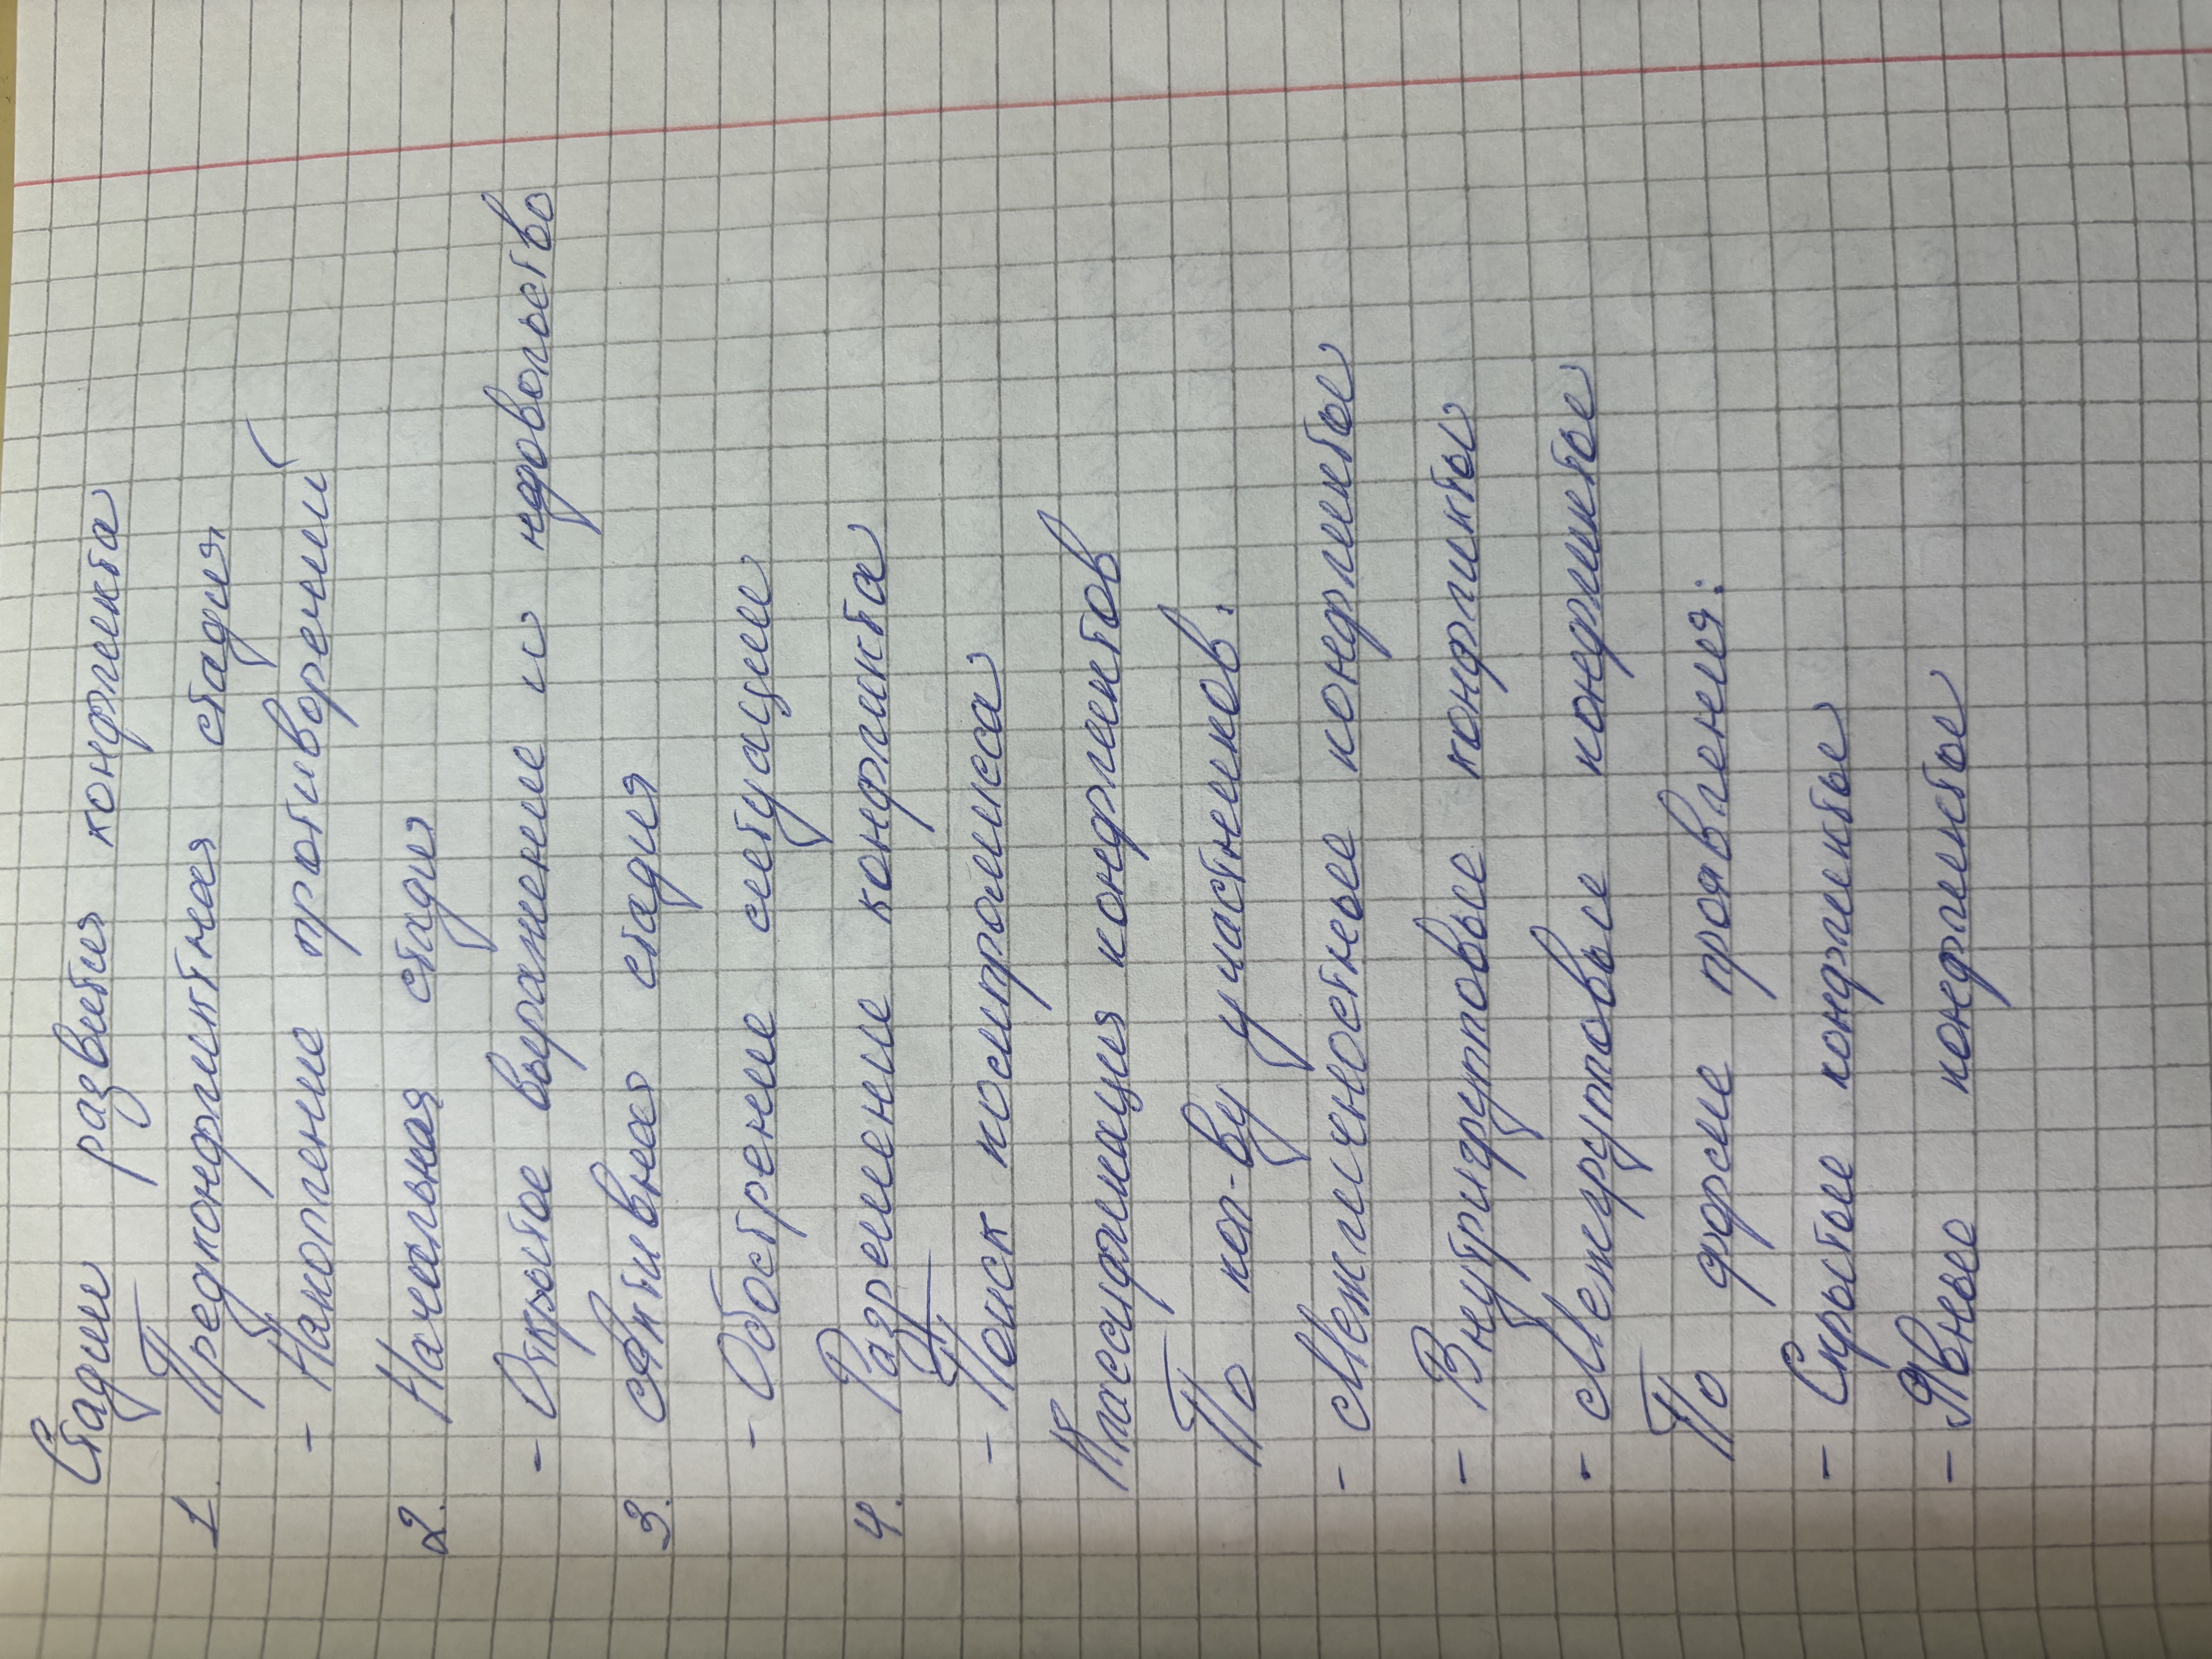 Стадии развития конфликта
1. Предконфликтная стадия
- Накопление противоречий
2. Начальная стадия
- Открытое выражение и ндовольство
3. Активная стадия
- Обострение ситуации
4. Разрешение конфликта
- Поиск компромисса
Классификация конфликтов
По кол-ву участников:
- Межличностные конфликты
- Внутригрупповые конфликты
- Межгрупповые конфликты
По форме проявления:
- Скрытые конфликты
- Явные конфликты